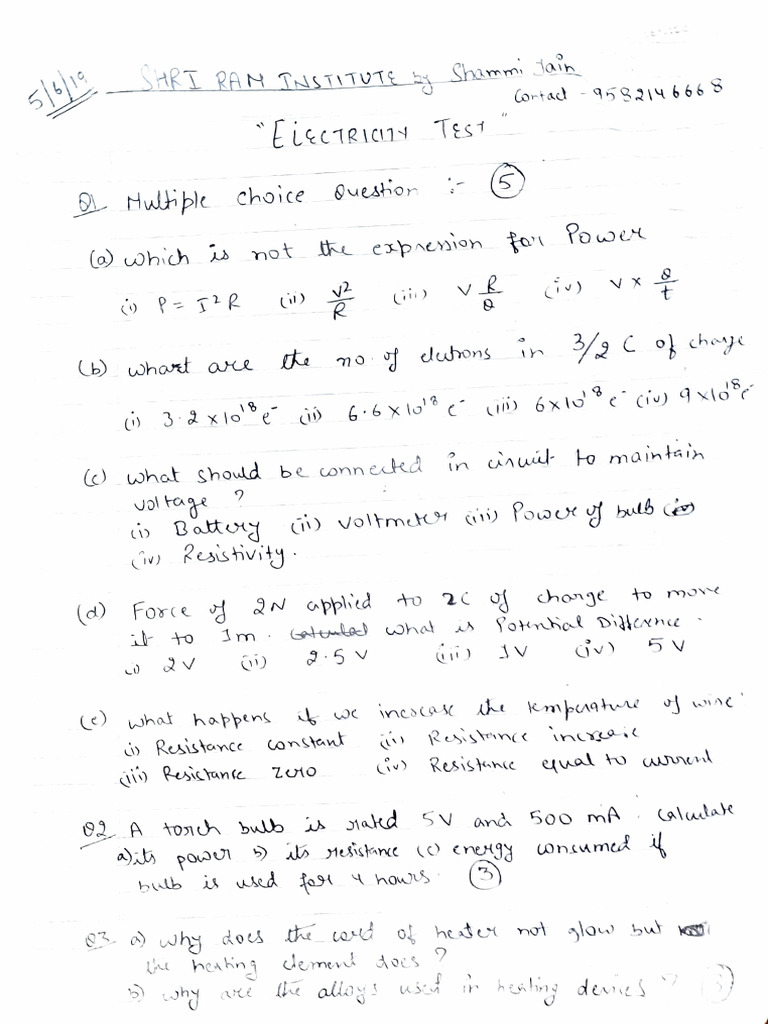 5/6/19 SHRI RAM INSTITUTE by Shammi Jain
Contact - 9582146668
"ELECTRICITY TEST"
Q1 Multiple Choice Question :- (5)
(a) which is not the expression for Power
(i) P = I²R (ii) V²/R (iii) V R/Q (iv) V × Q/t
(b) what are the no. of eletrons in 3/2 C of charge
(i) 3.2 × 10¹⁸ e⁻ (ii) 6.6 × 10¹⁸ e⁻ (iii) 6 × 10¹⁸ e⁻ (iv) 9 × 10¹⁸ e⁻
(c) what should be connected in circuit to maintain
voltage ?
(i) Battery (ii) voltmeter (iii) Power of bulb
(iv) Resistivity.
(d) Force of 2N applied to 2C of charge to move
it to 1m. what is Potential Difference.
(i) 2V (ii) 2.5 V (iii) 1V (iv) 5 V
(e) what happens if we increase the temperature of wire
(i) Resistance constant (ii) Resistance increase
(iii) Resistance zero (iv) Resistance equal to current
Q2 A torch bulb is rated 5V and 500 mA. calculate
a) its power b) its resistance (c) energy consumed if
bulb is used for 4 hours. (3)
Q3 a) why does the cord of heater not glow but
the heating element does ?
b) why are the alloys used in heating devices ? (3)